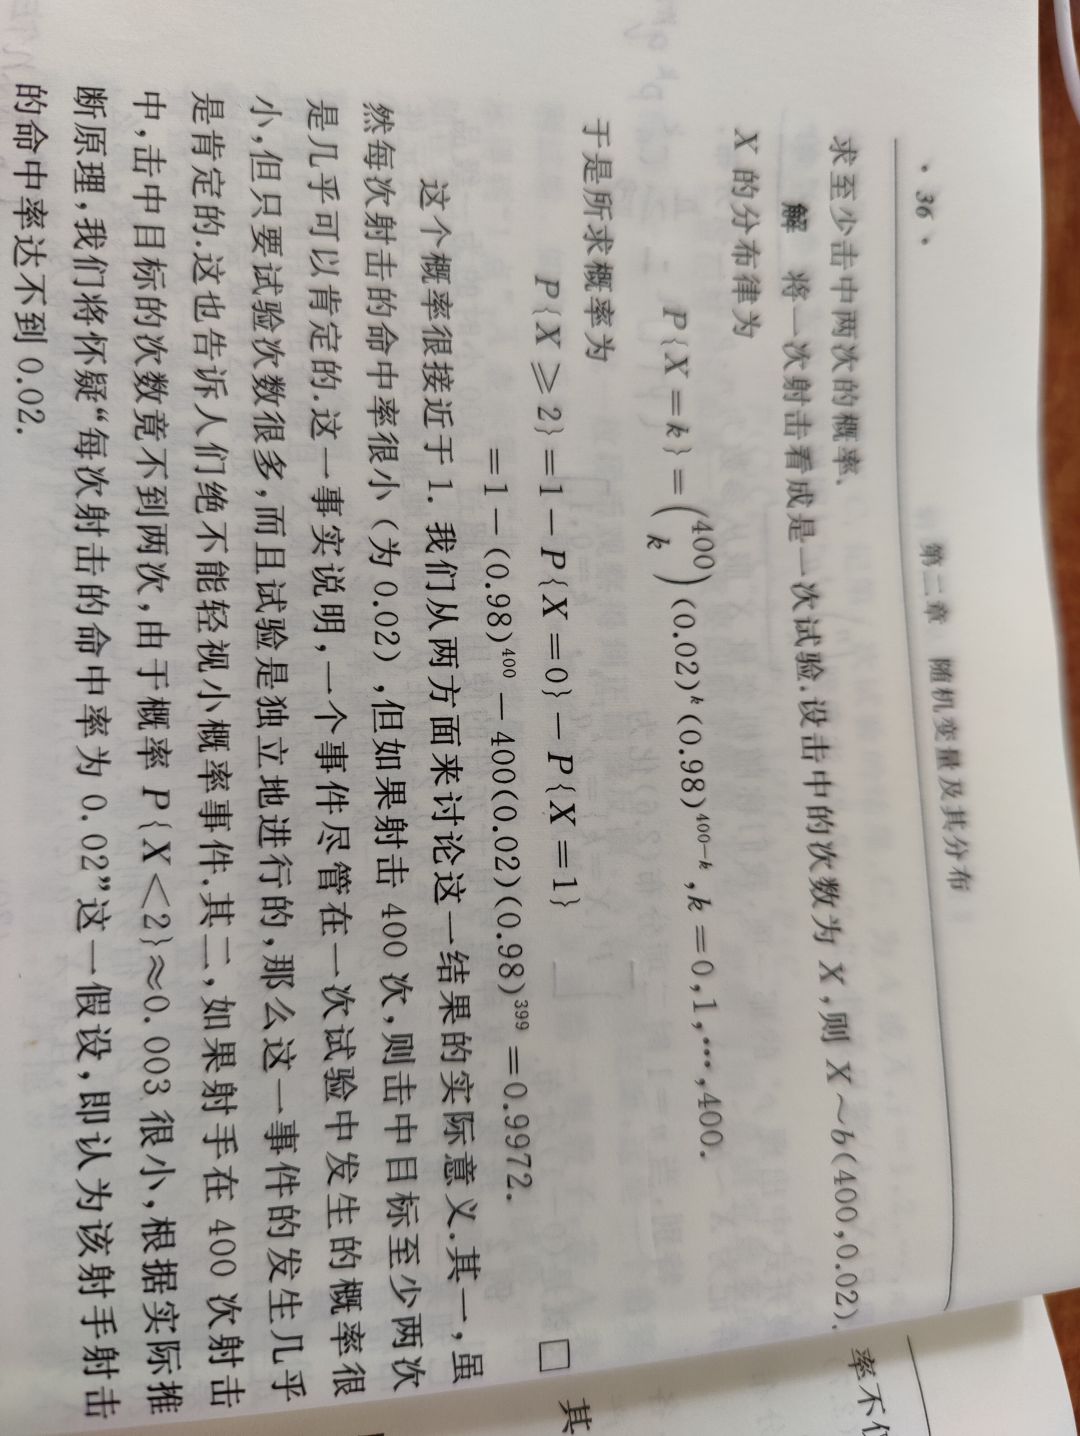 · 36 ·
第二章 随机变量及其分布
求至少击中两次的概率.
解 将一次射击看成是一次试验.设击中的次数为 X,则 X~b(400,0.02).
X 的分布律为
P{X=k}=(400 k)(0.02)^k(0.98)^{400-k},k=0,1,…,400.
于是所求概率为
P{X≥2}=1-P{X=0}-P{X=1}
=1-(0.98)^{400}-400(0.02)(0.98)^{399}=0.9972. □
这个概率很接近于 1. 我们从两方面来讨论这一结果的实际意义.其一,虽
然每次射击的命中率很小(为 0.02),但如果射击 400 次,则击中目标至少两次
是几乎可以肯定的.这一事实说明,一个事件尽管在一次试验中发生的概率很
小,但只要试验次数很多,而且试验是独立地进行的,那么这一事件的发生几乎
是肯定的.这也告诉人们绝不能轻视小概率事件.其二,如果射手在 400 次射击
中,击中目标的次数竟不到两次,由于概率 P{X<2}≈0.003 很小,根据实际推
断原理,我们将怀疑“每次射击的命中率为 0.02”这一假设,即认为该射手射击
的命中率达不到 0.02.
率不仅
其